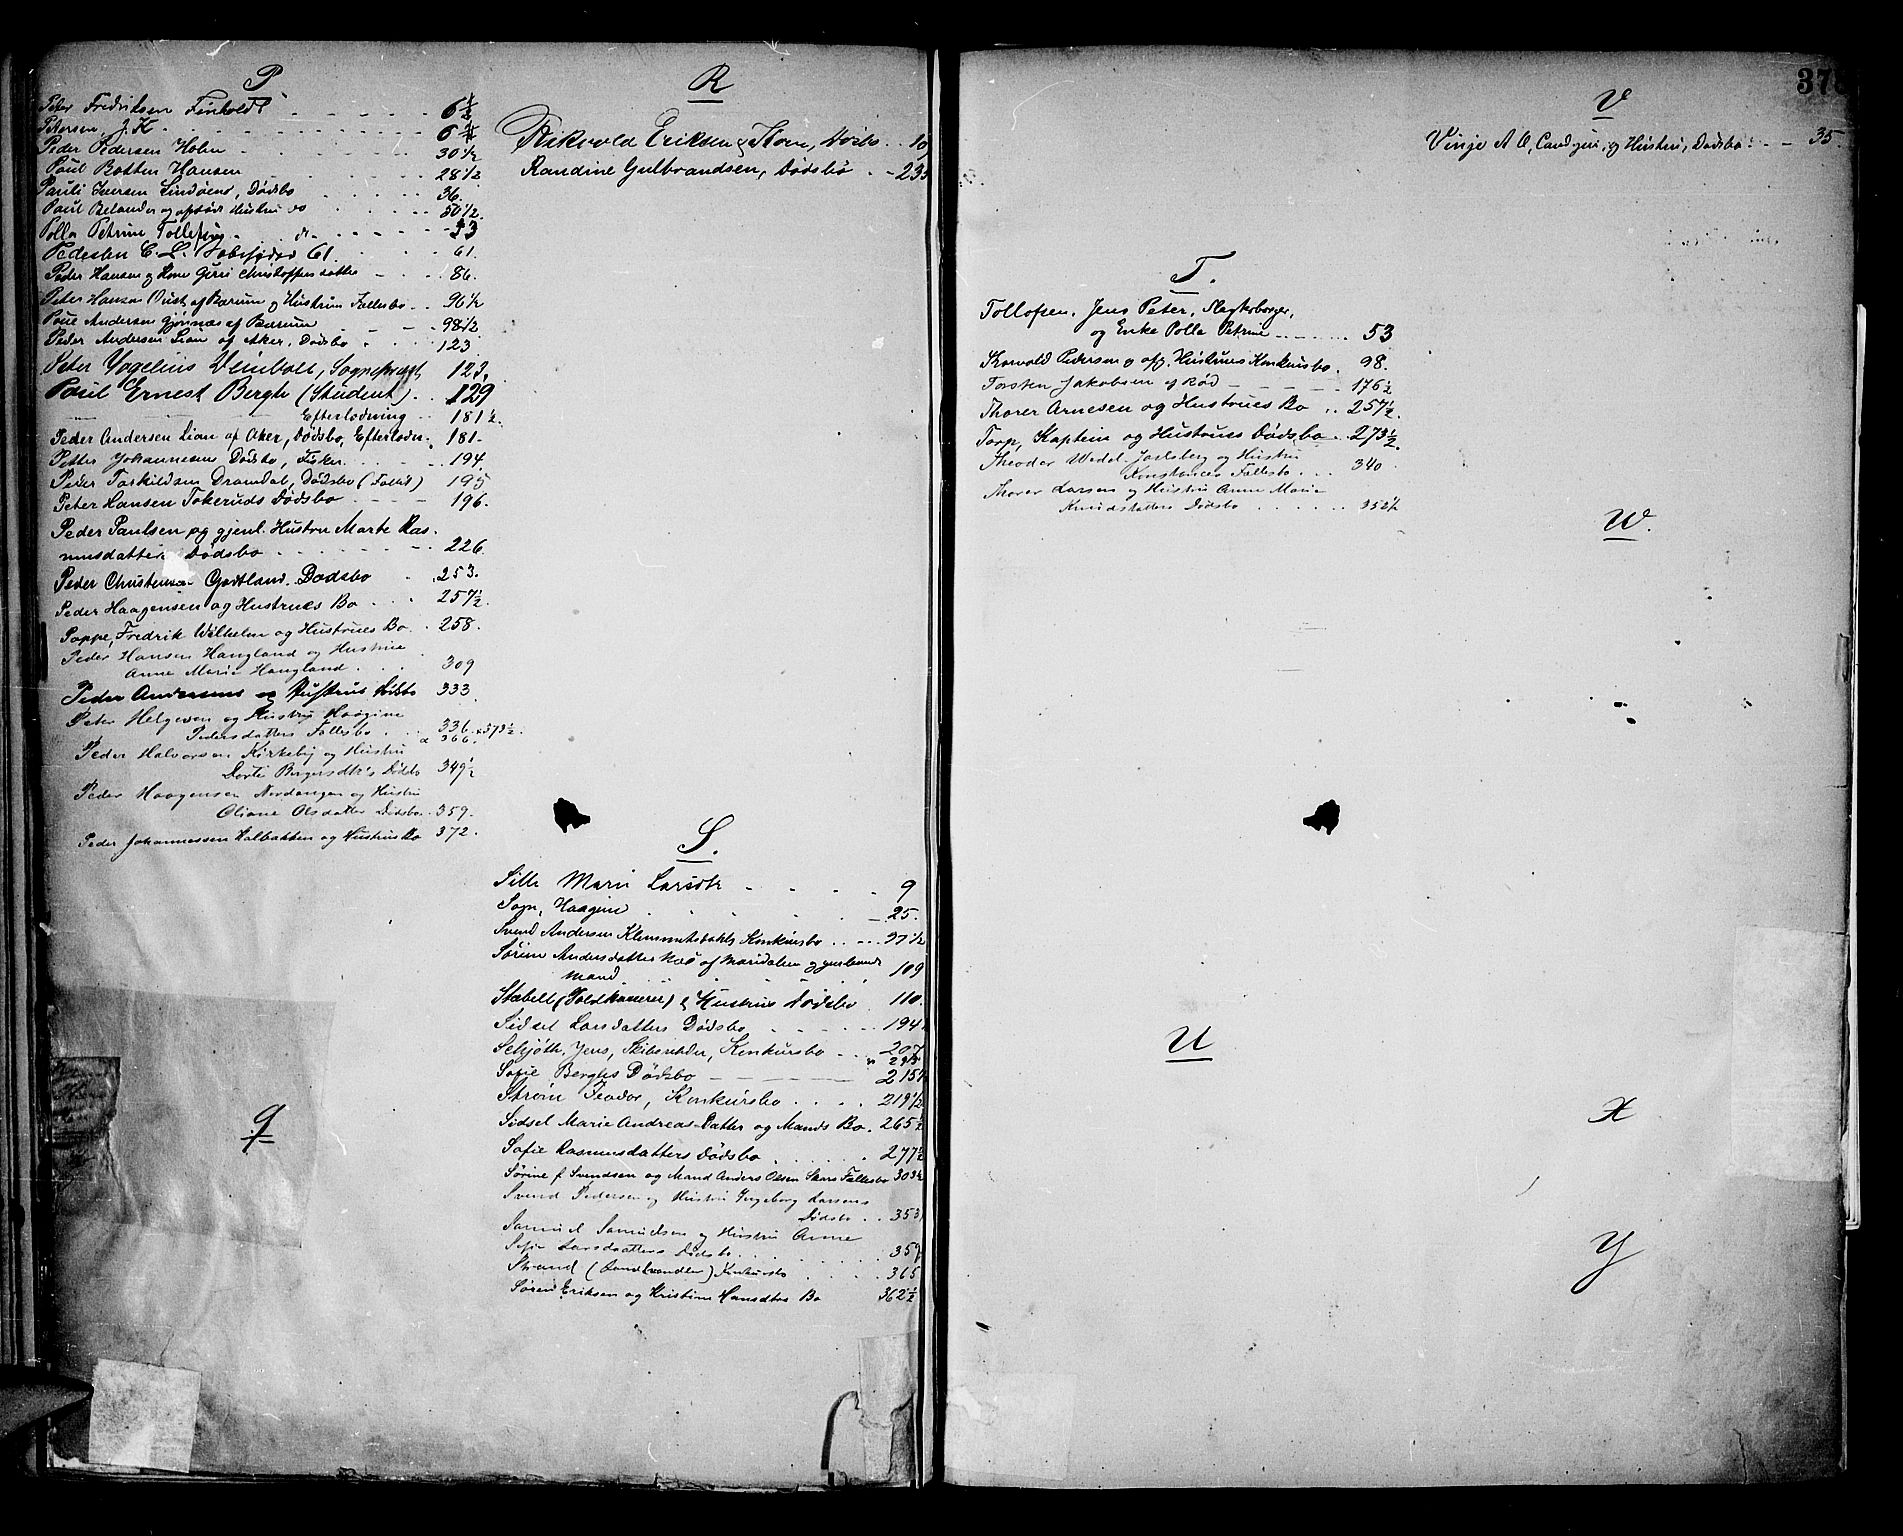 P
Peter Fredriksen Finholdt 6 1/2
Petersen, J. K. 6
Peder Pedersen Holm 30 1/2
Paul Botten Hansen 28 1/2
Pauli Iversen Lindøens, Dødsbo 36.
Paul Belander og Hustru do 50 1/2.
Polla Petrine Tollefsen do 53
Pedersen C. L. 61 61.
Peder Hansen og Kone Giri Christoffersdatter 86.
Peter Hansen Oust af Bærum og Hustrus Fællesbo 96 1/2
Poul Andersen Gjønnæs af Bærum 98 1/2
Peder Andersen Lian af Aker, Dødsbo 123
Peter Vogelius Deinbolt, Sogneprest 123.
Paul Ernest Bergh (Student) 129
Efterlodning 181 1/2.
Peder Andersen Lian af Aker, Dødsbo, Efterlodn. 181
Petter Johannesen Dødsbo, Fisker 194.
Peder Torkildsen Dramdal, Dødsbo (Fallit) 195
Peter Hansen Tokeruds Dødsbo 196.
Peder Paulsen og gjenl. Hustru Marte Ras-
musdatters Dødsbo 226.
Peder Christensen Gootland. Dødsbo 253.
Peder Haagensen og Hustrues Bo 257 1/2.
Poppe, Fredrik Wilhelm og Hustrues Bo. 258.
Peder Hansen Haugland og Hustrue
Anne Marie Haugland 309
Peder Andersens og Hustrus Dødsbo 333.
Peter Helgesen og Hustru Haagine
Pedersdatters Fællesbo 336. x 373 1/2.
x 366
Peder Halvorsen Kirkeby og Hustru
Dorte Borgersdtr's Dødsbo 349 1/2
Peder Haagensen Nordangen og Hustru
Oliane Olsdatter Dødsbo 359.
Peder Johannessen Halbakken og Hustrus Bo 372.
Q
R
Rikvold Eriksen og Kone, Dødsbo 10
Randine Gulbrandsen, Dødsbo 23
S.
Sille Marie Larsdtr 9
Sogn, Haagine 25.
Svend Andersen Klemmetsdahls Konkursbo 97 1/2
Sørine Andersdatter af Maridalen og genlevende
Mand 109
Stabell (Toldkasserer) og Hustrus Dødsbo 110.
Sidsel Larsdatters Dødsbo 194
Schjøth, Jens, Skibsreder, Konkursbo 207
Sofie Berghs Dødsbo 215
Strøm Teodor, Konkursbo 219 1/2
Sidsel Marie Andreas Datter og Mands Bo. 265 1/2
Sofie Rasmusdatters Dødsbo 277 1/2
Sørine f. Svendsen og Mand Anders Olsen Skars Fællesbo 303 1/2
Svend Pedersen og Hustru Ingeborg Larsens
Dødsbo 353
Samuel Samuelsen og Hustru Anne
Sofie Larsdatters Dødsbo 357
Strand (Landhandler) Konkursbo 365
Søren Eriksen og Kristine Hansdtrs Bo 362 1/2
378
V
Vinje A. O, Cand. jur. og Hustru, Dødsbo 35.
T.
Tollofsen, Jens Peter,
og Enke Polla Petrine 53
Thorvold Pedersen og afg. Hustrues Konkursbo 98.
Torsten Jakobsen af Rød 176 1/2
Thorer Arnesen og Hustrues Bo 257 1/2.
Torp, Kaptein og Hustrues Dødsbo 273 1/2
Theodor Wedel Jarlsberg og Hustru
Konstances Fællesbo 340
Thorer Larsen og Hustru Anne Marie
Knudsdatters Dødsbo 352 1/2
W.
U
X
Y